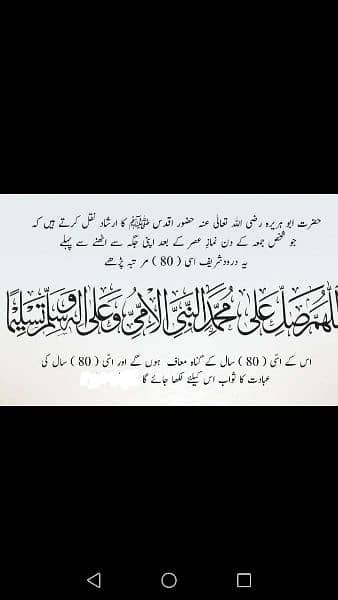 حضرت ابو ہریرہ رضی اللہ تعالیٰ عنہ حضور اقدس ﷺ کا ارشاد نقل کرتے ہیں کہ
جو شخص جمعہ کے دن نماز عصر کے بعد اپنی جگہ سے اٹھنے سے پہلے
یہ درود شریف اسی ( 80 ) مرتبہ پڑھے
اللهم صل على محمد النبي الأمي وعلى اله وسلم تسليما
اس کے اسّی ( 80 ) سال کے گناہ معاف ہوں گے اور اسّی ( 80 ) سال کی
عبادت کا ثواب اس کیلئے لکھا جائے گا